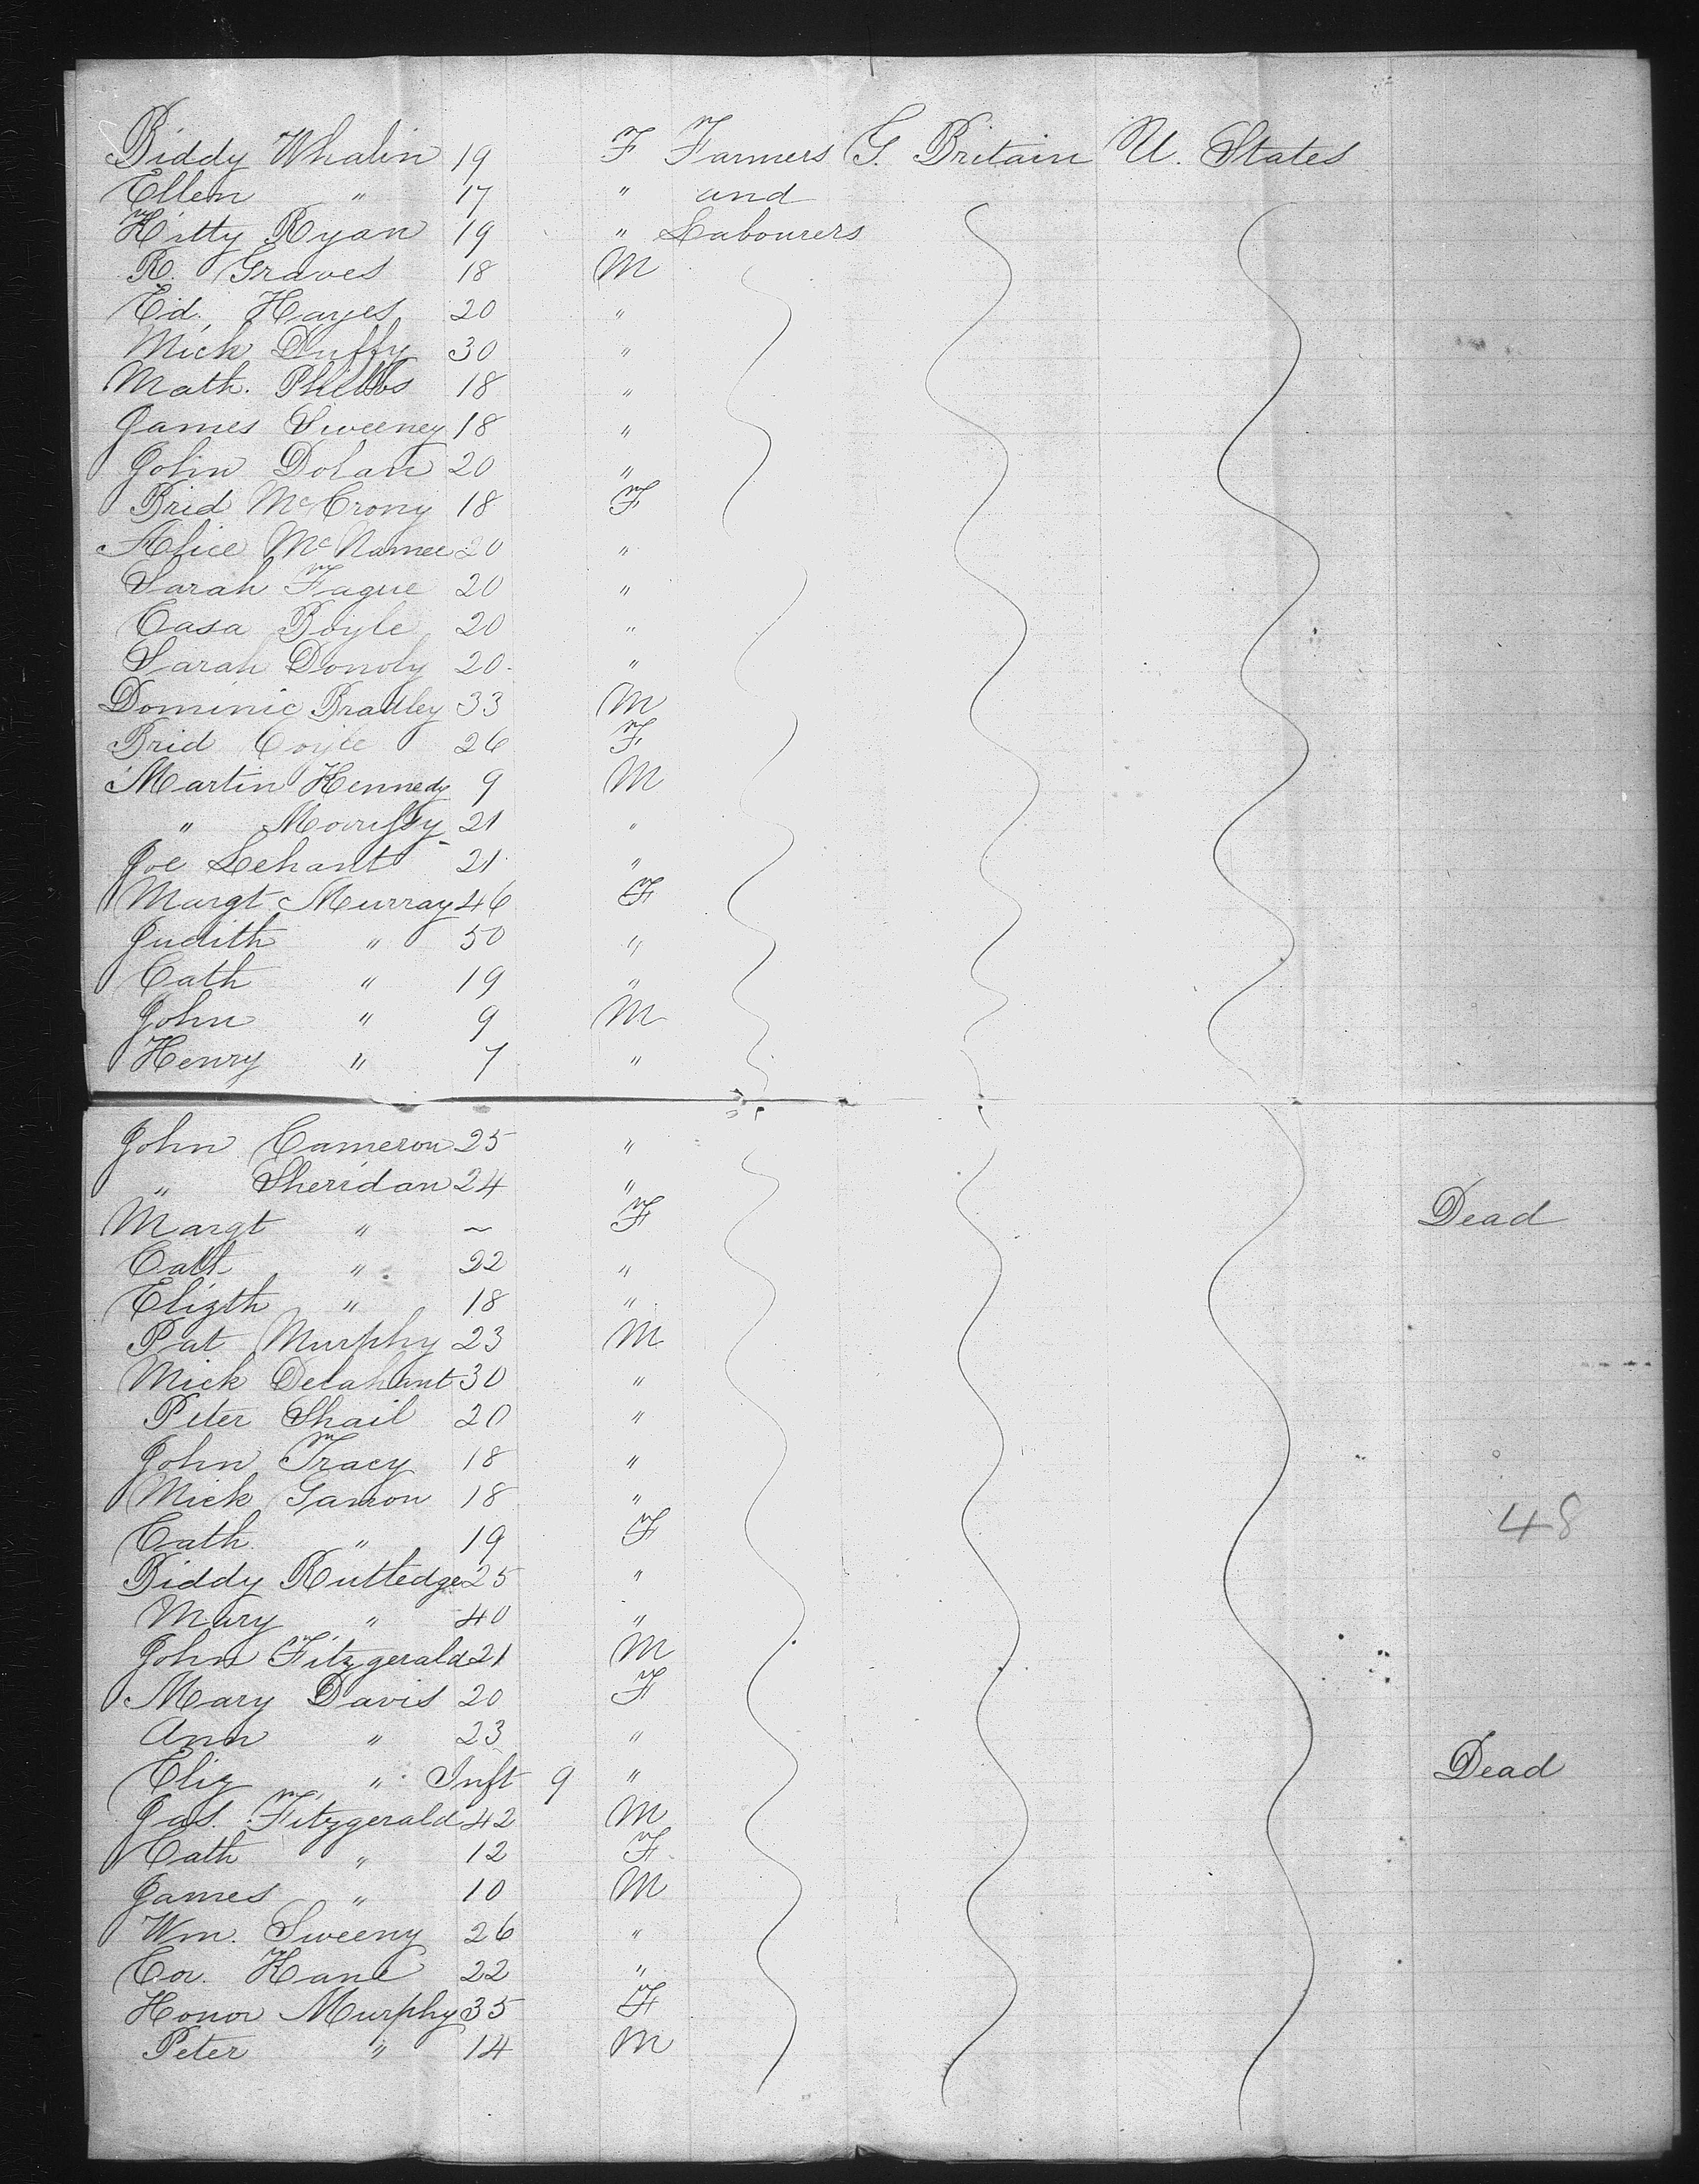 Biddy Whalin 19 F Farmers G. Britain U. States
Ellen " 17 " and
Kitty Ryan 19 " Labourers
R. Graves 18 M
Ed. Hayes 20 "
Mick Duffy 30 "
Math. Phelbs 18 "
James Sweeney 18 "
John Dolan 20 "
Brid McCrony 18 F
Alice McNamee 20 "
Sarah Fague 20 "
Casa Boyle 20 "
Sarah Donoly 20 "
Dominic Bradley 33 M
Brid Coyle 26 F
Martin Kennedy 9 M
" Morrissy 21 "
Joe Lehant 21 "
Margt. Murray 46 F
Judith " 50 "
Cath " 19 "
John " 9 M
Henry " 7 "
John Cameron 25 "
" Sheridan 24 "
Margt " ~ F Dead
Cath " 22 "
Elizth " 18 "
Pat Murphy 23 M
Mick Delahant 30 "
Peter Shail 20 "
John Tracy 18 "
Mick Gamon 18 "
Cath " 19 F
48
Biddy Ruttedge 25 "
Mary " 40 "
John Fitzgerald 21 M
Mary Davis 20 F
Ann " 23 "
Eliz " Inft 9 " Dead
Jas. Fitzgerald 42 M
Cath " 12 F
James " 10 M
Wm. Sweeny 26 "
Cor. Kane 22 "
Honor Murphy 35 F
Peter " 14 M